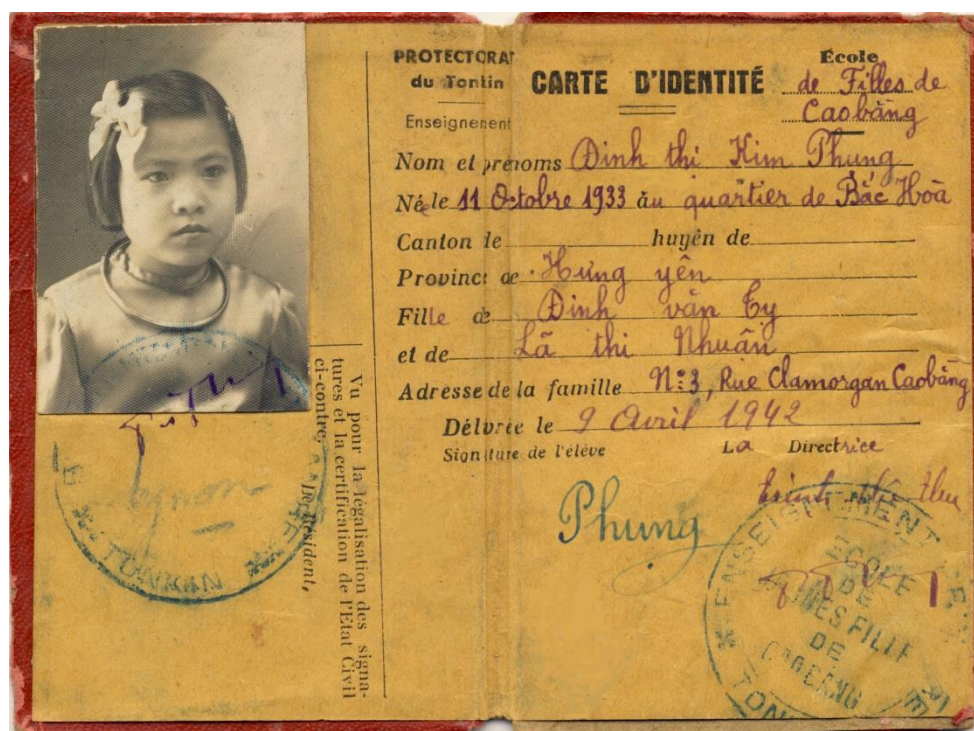 PROTECTORAT
du Tonkin
Enseignement
CARTE D'IDENTITÉ
École
de Filles de
Caobăng
Nom et prénoms Đinh thị Kim Phung
Née le 11 Octobre 1933 au quartier de Bắc Hoà
Canton de huyện de
Province de Hưng yên
Fille de Đinh văn Ty
et de Lã thi Nhuận
Adresse de la famille N° 3, Rue Clamorgan Caobăng
Délivrée le 9 Avril 1942
Signature de l'élève La Directrice
Phung
Trinh thi thu
Vu pour la légalisation des signa-
tures et la certification de l'Etat Civil
ci-contre,
Le Résident,
TONKIN
ENSEIGNEMENT
ECOLE
DE
JEUNES FILLE
DE
CAOBANG